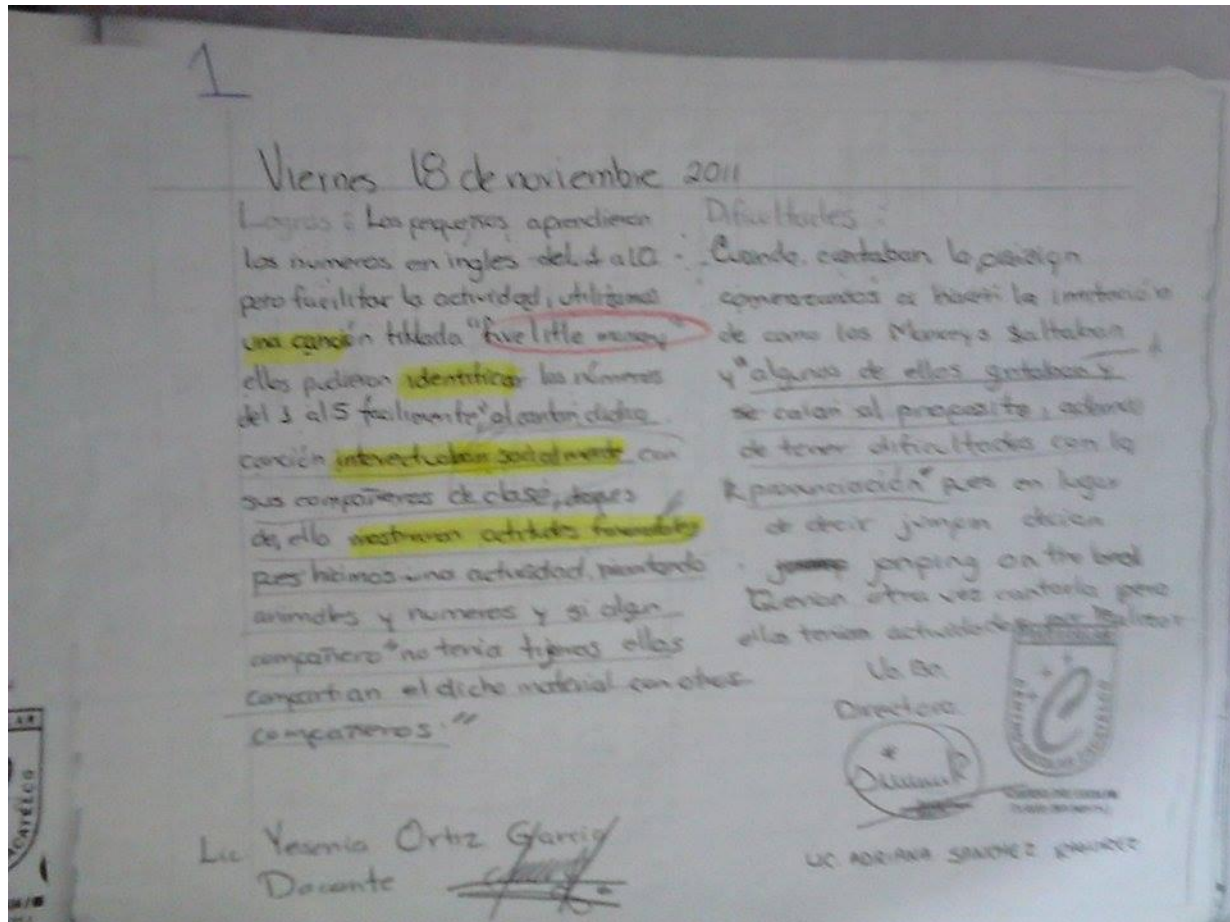 1
Viernes 18 de noviembre 2011
Logros : Los pequeños aprendieron
los numeros en ingles del 1 al 10
pero facilitar la actividad, utilizamos
una canción titulada "five little
ellos pudieron identificar los números
del 1 al 5 facilmente" al cantar dicha
canción socialmente con
sus compañeros de clase,
de ello mostraron actitudes favorables
pues hicimos una actividad,
animales y numeros y si algun
compañero "no tenia tijeras ellos
compartian el dicho material con otros
compañeros."
Dificultades :
Cuando cantaban la
comenzamos a la
de como los Monkeys saltaban
y "algunos de ellos gritaban y
se caian al proposito, ademas
de tener dificultades con la
pronunciación" pues en lugar
de decir decian
jonping on the bed
Querian otra vez cantarla pero
ellos tenian actividades por realizar
Vo. Bo.
Directora
LIC ADRIANA SANCHEZ RAMIREZ
Lic Yesenia Ortiz Garcia
Docente